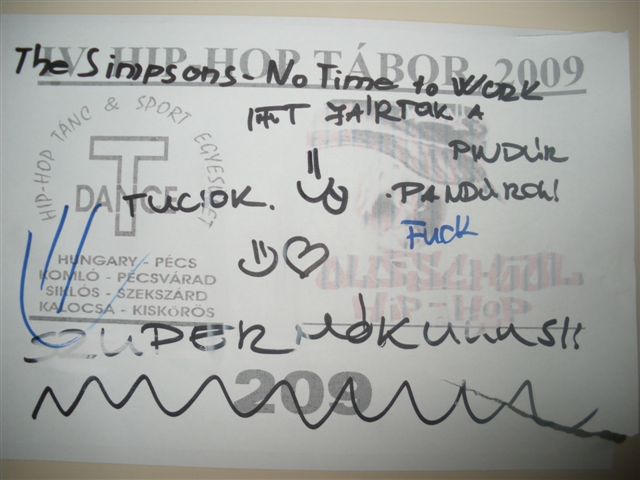 IV. HIP-HOP TÁBOR 2009
The Simpsons - No Time to WORK
ITT JÁRTAK A
PINDÚR
PANDÚROK!
HIP-HOP TÁNC & SPORT EGYESÜLET
T
DANCE
TUCIOK.
Fuck
HUNGARY - PÉCS
KOMLÓ - PÉCSVÁRAD
SIKLÓS - SZEKSZÁRD
KALOCSA - KISKŐRÖS
OLDSCHOOL
HIP-HOP
SZUPER MÓKUUUS!!
209